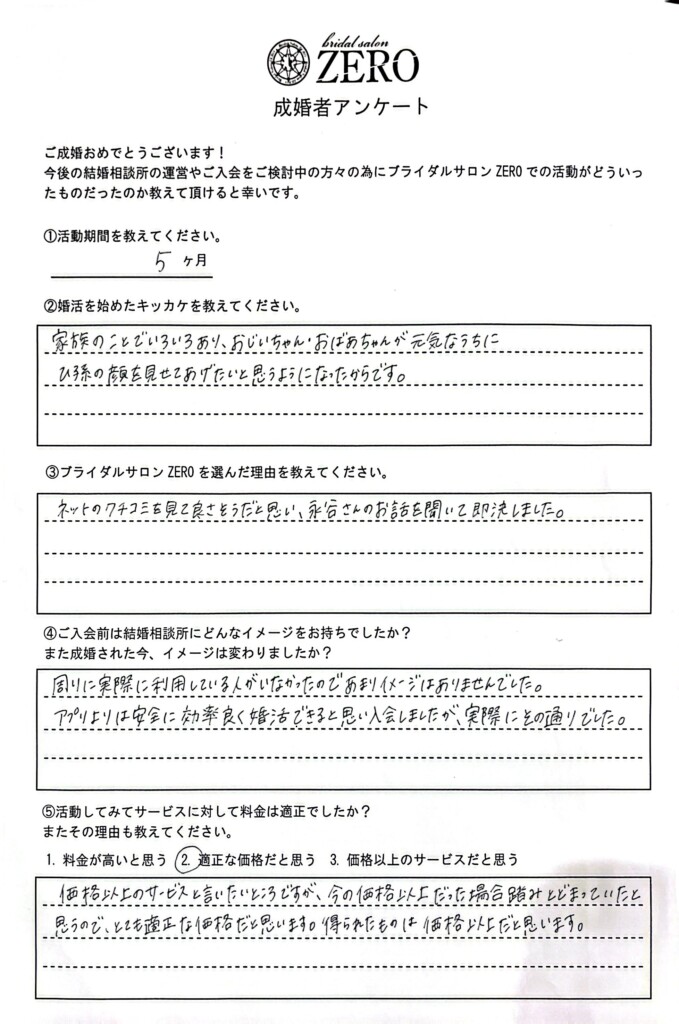 bridal salon
ZERO
成婚者アンケート
ご成婚おめでとうございます！
今後の結婚相談所の運営やご入会をご検討中の方々の為にブライダルサロン ZERO での活動がどういっ
たものだったのか教えて頂けると幸いです。
①活動期間を教えてください。
5 ヶ月
②婚活を始めたキッカケを教えてください。
家族のことでいろいろあり、おじいちゃん・おばあちゃんが元気なうちに
ひ孫の顔を見せてあげたいと思うようになったからです。
③ブライダルサロン ZERO を選んだ理由を教えてください。
ネットのクチコミを見て良さそうだと思い、永谷さんのお話を聞いて即決しました。
④ご入会前は結婚相談所にどんなイメージをお持ちでしたか？
また成婚された今、イメージは変わりましたか？
周りに実際に利用している人がいなかったのであまりイメージはありませんでした。
アプリよりは安全に効率良く婚活できると思い入会しましたが、実際にその通りでした。
⑤活動してみてサービスに対して料金は適正でしたか？
またその理由も教えてください。
1. 料金が高いと思う 2. 適正な価格だと思う 3. 価格以上のサービスだと思う
価格以上のサービスと言いたいところですが、今の価格以上だった場合踏みとどまっていたと
思うので、とても適正な価格だと思います。得られたものは価格以上だと思います。